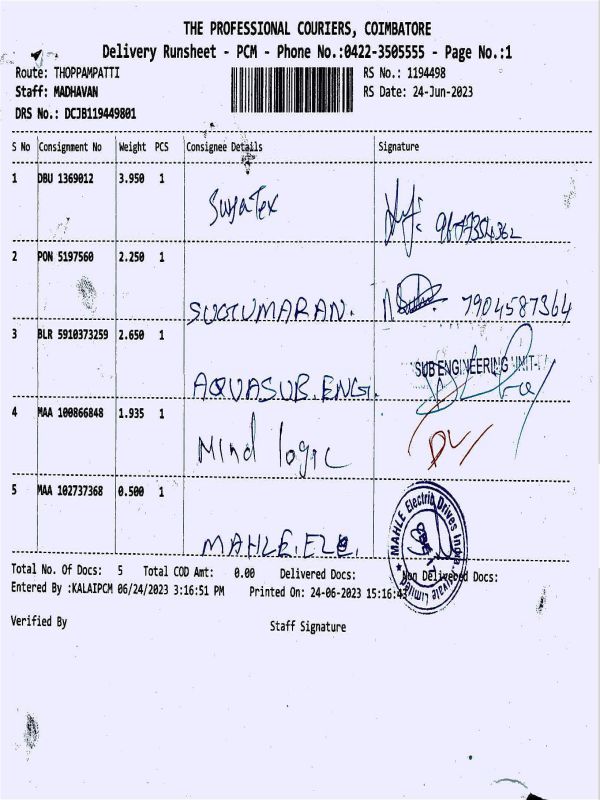 THE PROFESSIONAL COURIERS, COIMBATORE
Delivery Runsheet - PCM - Phone No.:0422-3505555 - Page No.:1
Route: THOPPAMPATTI RS No.: 1194498
Staff: MADHAVAN RS Date: 24-Jun-2023
DRS No.: DCJB119449801
S No Consignment No Weight PCS Consignee Details Signature
1 DBU 1369012 3.950 1
SuyaTex
2 PON 5197560 2.250 1
SUGUMARAN. 7904587364
3 BLR 5910373259 2.650 1
SUB ENGINEERING UNIT-I
AQUASUB.ENG.
4 MAA 100866848 1.935 1
Mind logic
5 MAA 102737368 0.500 1
MAHLE Electric Drives India Private Limited
MAHLE.ELE.
Total No. Of Docs: 5 Total COD Amt: 0.00 Delivered Docs: Non Delivered Docs:
Entered By :KALAIPCM 06/24/2023 3:16:51 PM Printed On: 24-06-2023 15:16:43
Verified By Staff Signature